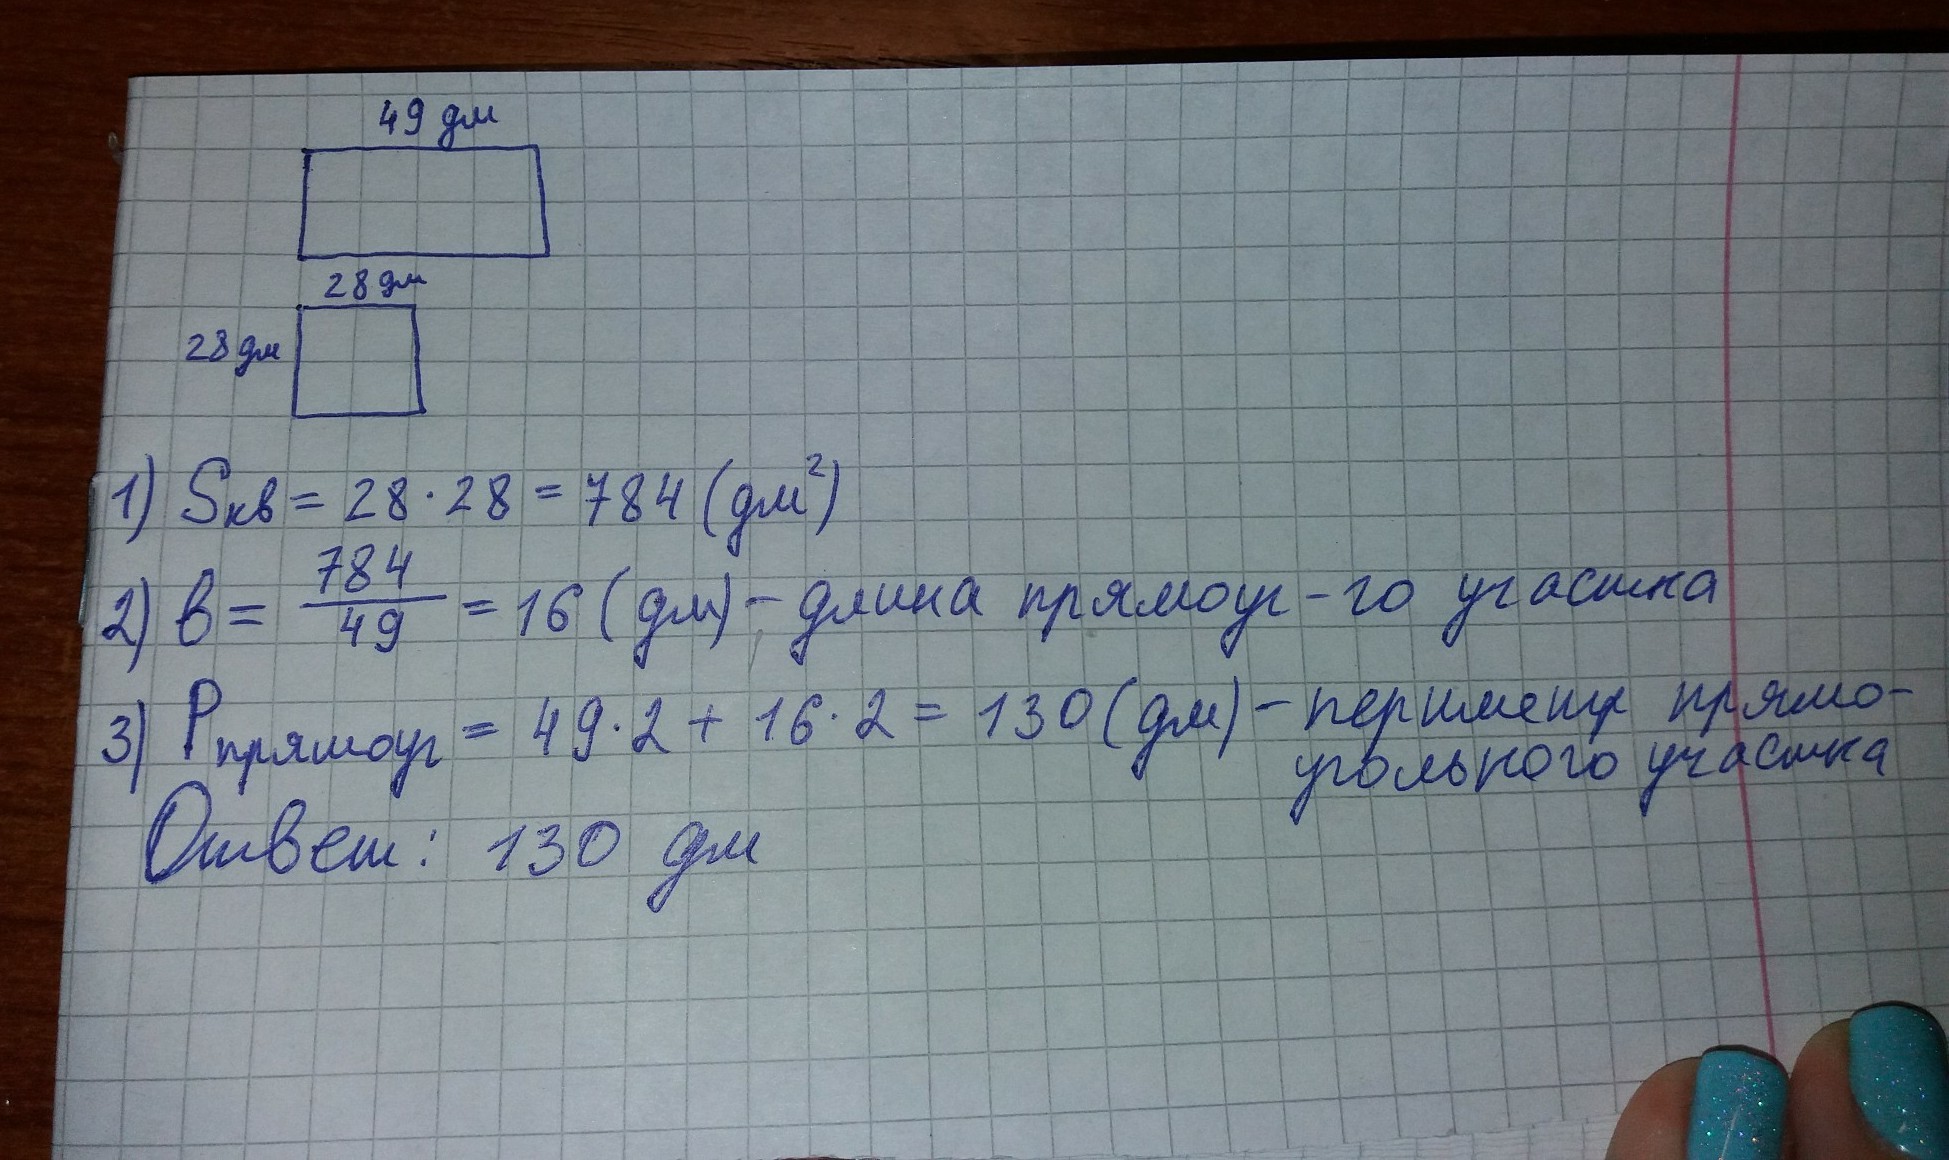 49 дм
28 дм
28 дм
1) Sкв = 28 · 28 = 784 (дм²)
2) в = 784/49 = 16 (дм) - длина прямоуг-го участка
3) Pпрямоуг = 49·2 + 16·2 = 130 (дм) - периметр прямо-
угольного участка
Ответ: 130 дм